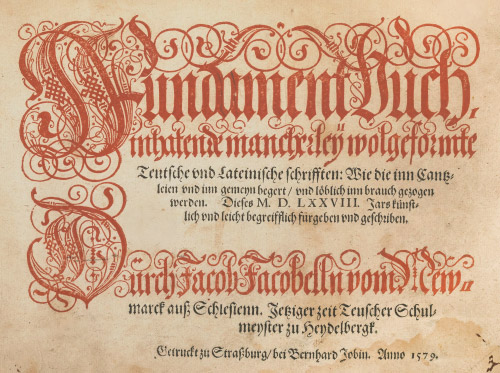 Fundament Buch,
inhalende mancherley wolgeformte
Teutsche vnd Lateinische schrifften: Wie die inn Cantz-
leien vnd inn gemeyn begert/ vnd löblich inn brauch gezogen
werden. Dieses M. D. LXXVIII. Jars künst-
lich vnd leicht begreifflich fürgeben vnd geschriben.
Durch Jacob Jacobelln vom New-
marck auß Schlesienn. Jetziger zeit Teuscher Schul-
meyster zu Heydelbergk.
Getruckt zu Straßburg/ bei Bernhard Jobin. Anno 1579.